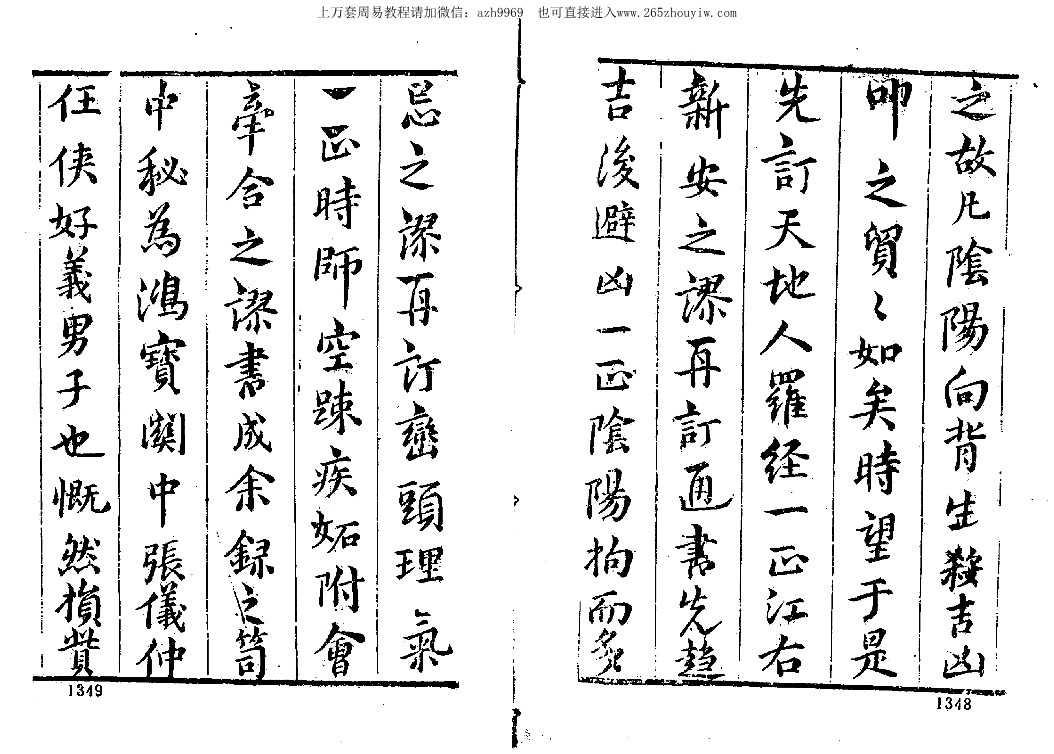 上万套周易教程请加微信：azh9969　也可直接进入www.265zhouyiw.com
之故凡陰陽向背生殺吉凶
叩之貿〻如矣時望于是
先訂天地人羅经一正江右
新安之謬再訂通書先趋
吉後避凶一正陰陽拘而多
1348
忌之謬再訂巒頭理氣
一正時師空踈疾妬附會
牽合之謬書成余録之笥
中秘為鴻寶關中張儀仲
任俠好義男子也慨然損貲
1349